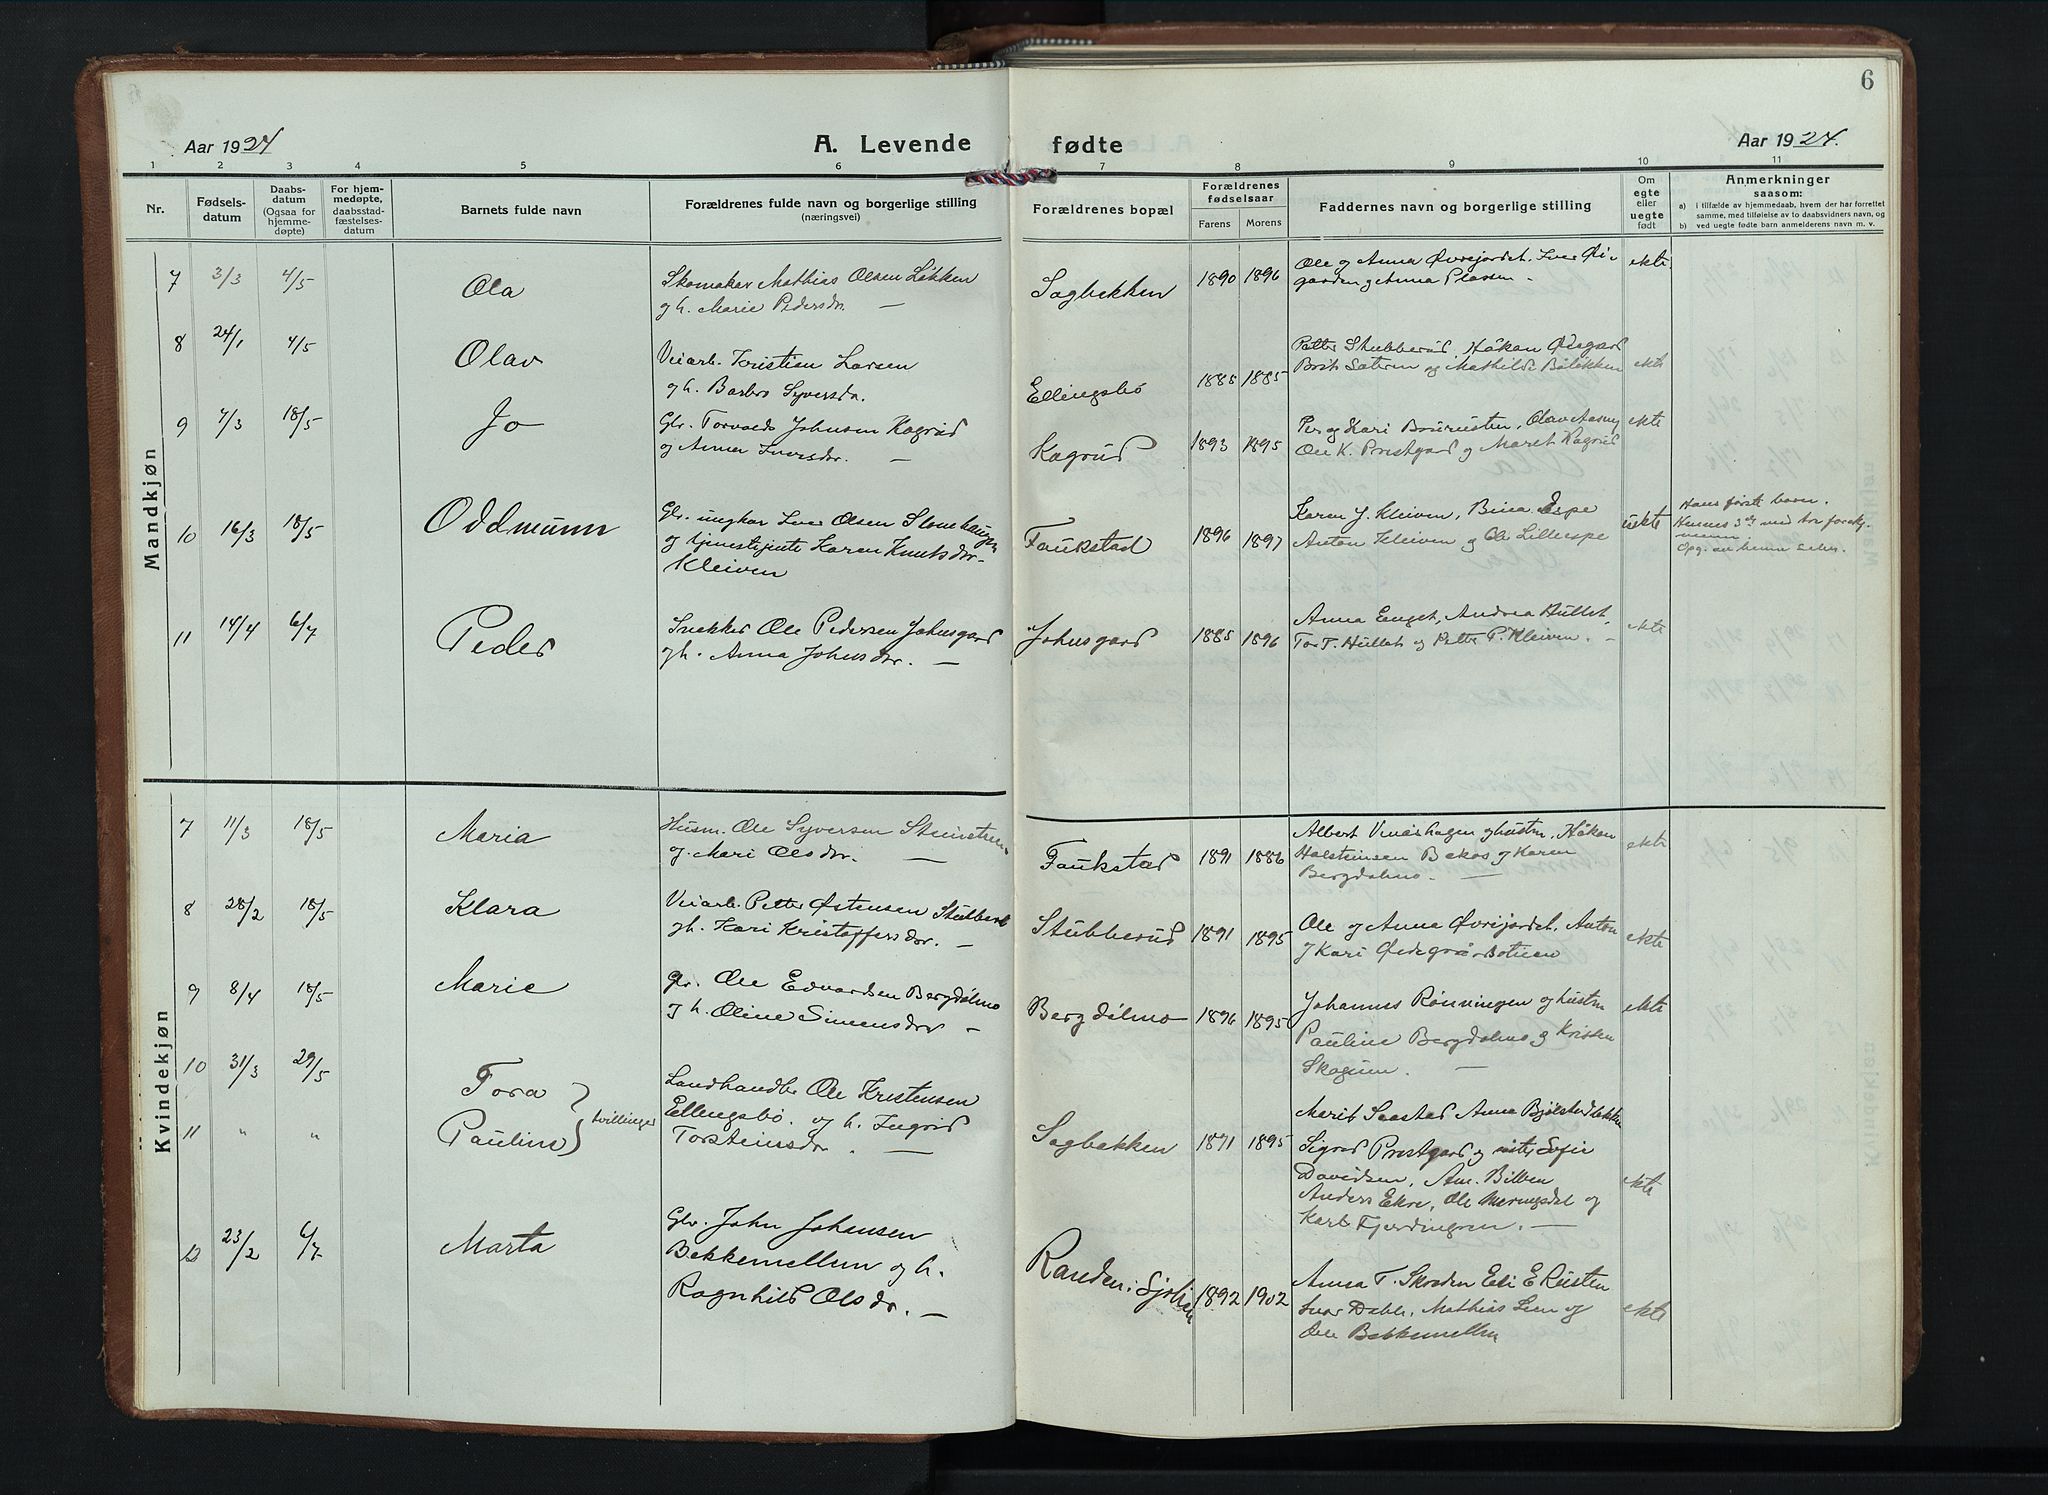 6
Aar 1924
A. Levende fødte
Aar 1924.
1 2 3 4 5 6 7 8 9 10 11
Nr.
Fødsels-
datum
Daabs-
datum
(Ogsaa for
hjemme-
døpte)
For hjem-
medøpte,
daabsstad-
fæstelses-
datum
Barnets fulde navn
Forældrenes fulde navn og borgerlige stilling
(næringsvei)
Forældrenes bopæl
Forældrenes
fødselsaar
Farens Morens
Faddernes navn og borgerlige stilling
Om
egte
eller
uegte
født
Anmerkninger
saasom:
a) i tilfælde av hjemmedaab, hvem der har forrettet
samme, med tilføielse av to daabsvidners navn, og
b) ved uegte fødte barn anmelderens navn m. v.
Mandkjøn
7 3/3 4/5 Ola
Skomaker Mathias Olsen Løkken
og h. Marie Pedersdr. —
Sagbekken 1890 1896
Ole og Anna Øvrejordet, Iver Øi-
gaarden og Anna Plassen —
ekte
8 24/1 4/5 Olav
Veiarb. Kristian Larsen
og h. Barbro Syversdr.
Ellingsbø 1885 1885
Petter Stubberud, Håkon Ødegard
Brit Sæterm og Mathilde Bålåkken
ekte
9 7/3 18/5 Jo
Gbr. Torvald Johnsen Kagrud
og Anna Iversdr. —
Kagrud 1893 1895
Per og Kari Bruristen, Olav Aasmy
Ole K. Prestgard og Marit Kagrud
ekte
10 16/3 18/5 Oddmunn
Gbr. ungkar Iver Olsen Slonehaugen
og tjenestejente Karen Knutsdr.
Kleiven
Faukstad 1896 1897
Karen J. Kleiven, Bina Espe
Anton Kleiven og Ole Lillespe
uekte
Hans første barn.
Hennes 3dje med tre forskj.
menn.
Opg. av henne selv.
11 14/4 6/7 Peder
Snekker Ole Pedersen Johnsgard
og h. Anna Johnsdr. —
Johnsgard 1885 1896
Anna Enget, Andrea Hullet,
Tor T. Hullet og Petter P. Kleiven. —
ekte
Kvindekjøn
7 11/3 18/5 Maria
Husm. Ole Syversen Steinstuen
og Mari Olsdr. —
Faukstad 1891 1886
Albert Vinåshagen og hustru, Håkon
Halsteinsen Bekos og Karen
Bergdølmo. —
ekte
8 28/2 18/5 Klara
Veiarb. Petter Østensen Stubberud
og h. Kari Kristoffersdr. —
Stubberud 1891 1895
Ole og Anna Øvrejordet, Anton
og Kari Ødegård Botten
ekte
9 8/4 18/5 Marie
Gbr. Ole Edvardsen Bergdølmo
og h. Oline Simensdr —
Bergdølmo 1896 1895
Johannes Rønningen og hustru
Pauline Bergdølmo og Kristen
Skogum. —
ekte
10 31/3 29/5 Tora
11 " " Pauline } tvillinger
Landhandler Ole Kristensen
Ellingsbø og h. Ingrid
Torsteinsdr. —
Sagbekken 1891 1895
Marit Saastad, Anna Bjølstadløkken
Sigrid Prestgard og søster Sofie
Davidsen, Am. Bilben
Anders Ekre, Ole Meringsdal og
Karl Fjerdingren. —
ekte
12 23/2 6/7 Marta
Gbr. John Johansen
Bekkemellem og h.
Ragnhild Olsdr. —
Randen, Sjoa 1892 1902
Anna T. Skorden Eli E. Rusten
Ivar Dahle, Mathias Lien og
Ole Bekkemellem
ekte